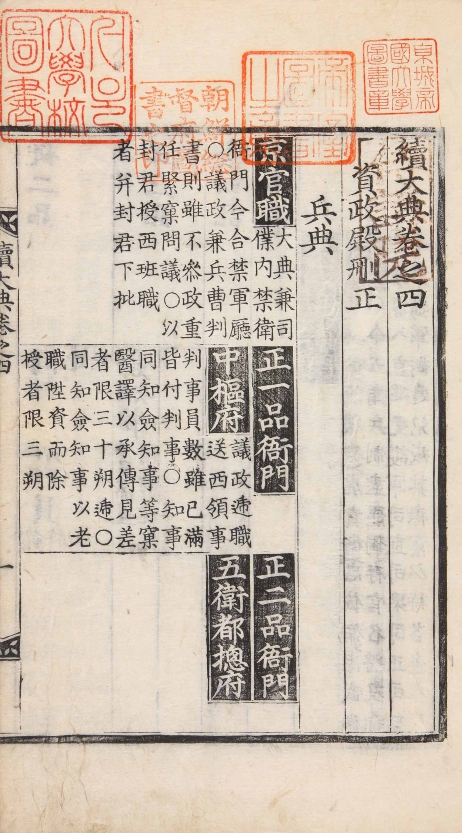 서울大學校圖書
帝室圖書之章
京城帝國大學圖書章
續大典卷之四
資政殿刪正
兵典
京官職
大典兼司
僕內禁衛
衙門今合禁軍廳
○議政兼兵曹判
書則雖不叅政重
任緊窠問議○以
封君授西班職
者幷封君下批
正一品衙門
中樞府
議政遞職
送西領事
判事員數雖已滿
皆付判事○知事
同知僉知事等窠
醫譯以承傳見差
者限三十朔遞○
同知僉知事以老
職陞資而除
授者限三朔
正二品衙門
五衛都摠府
續大典卷之四
一